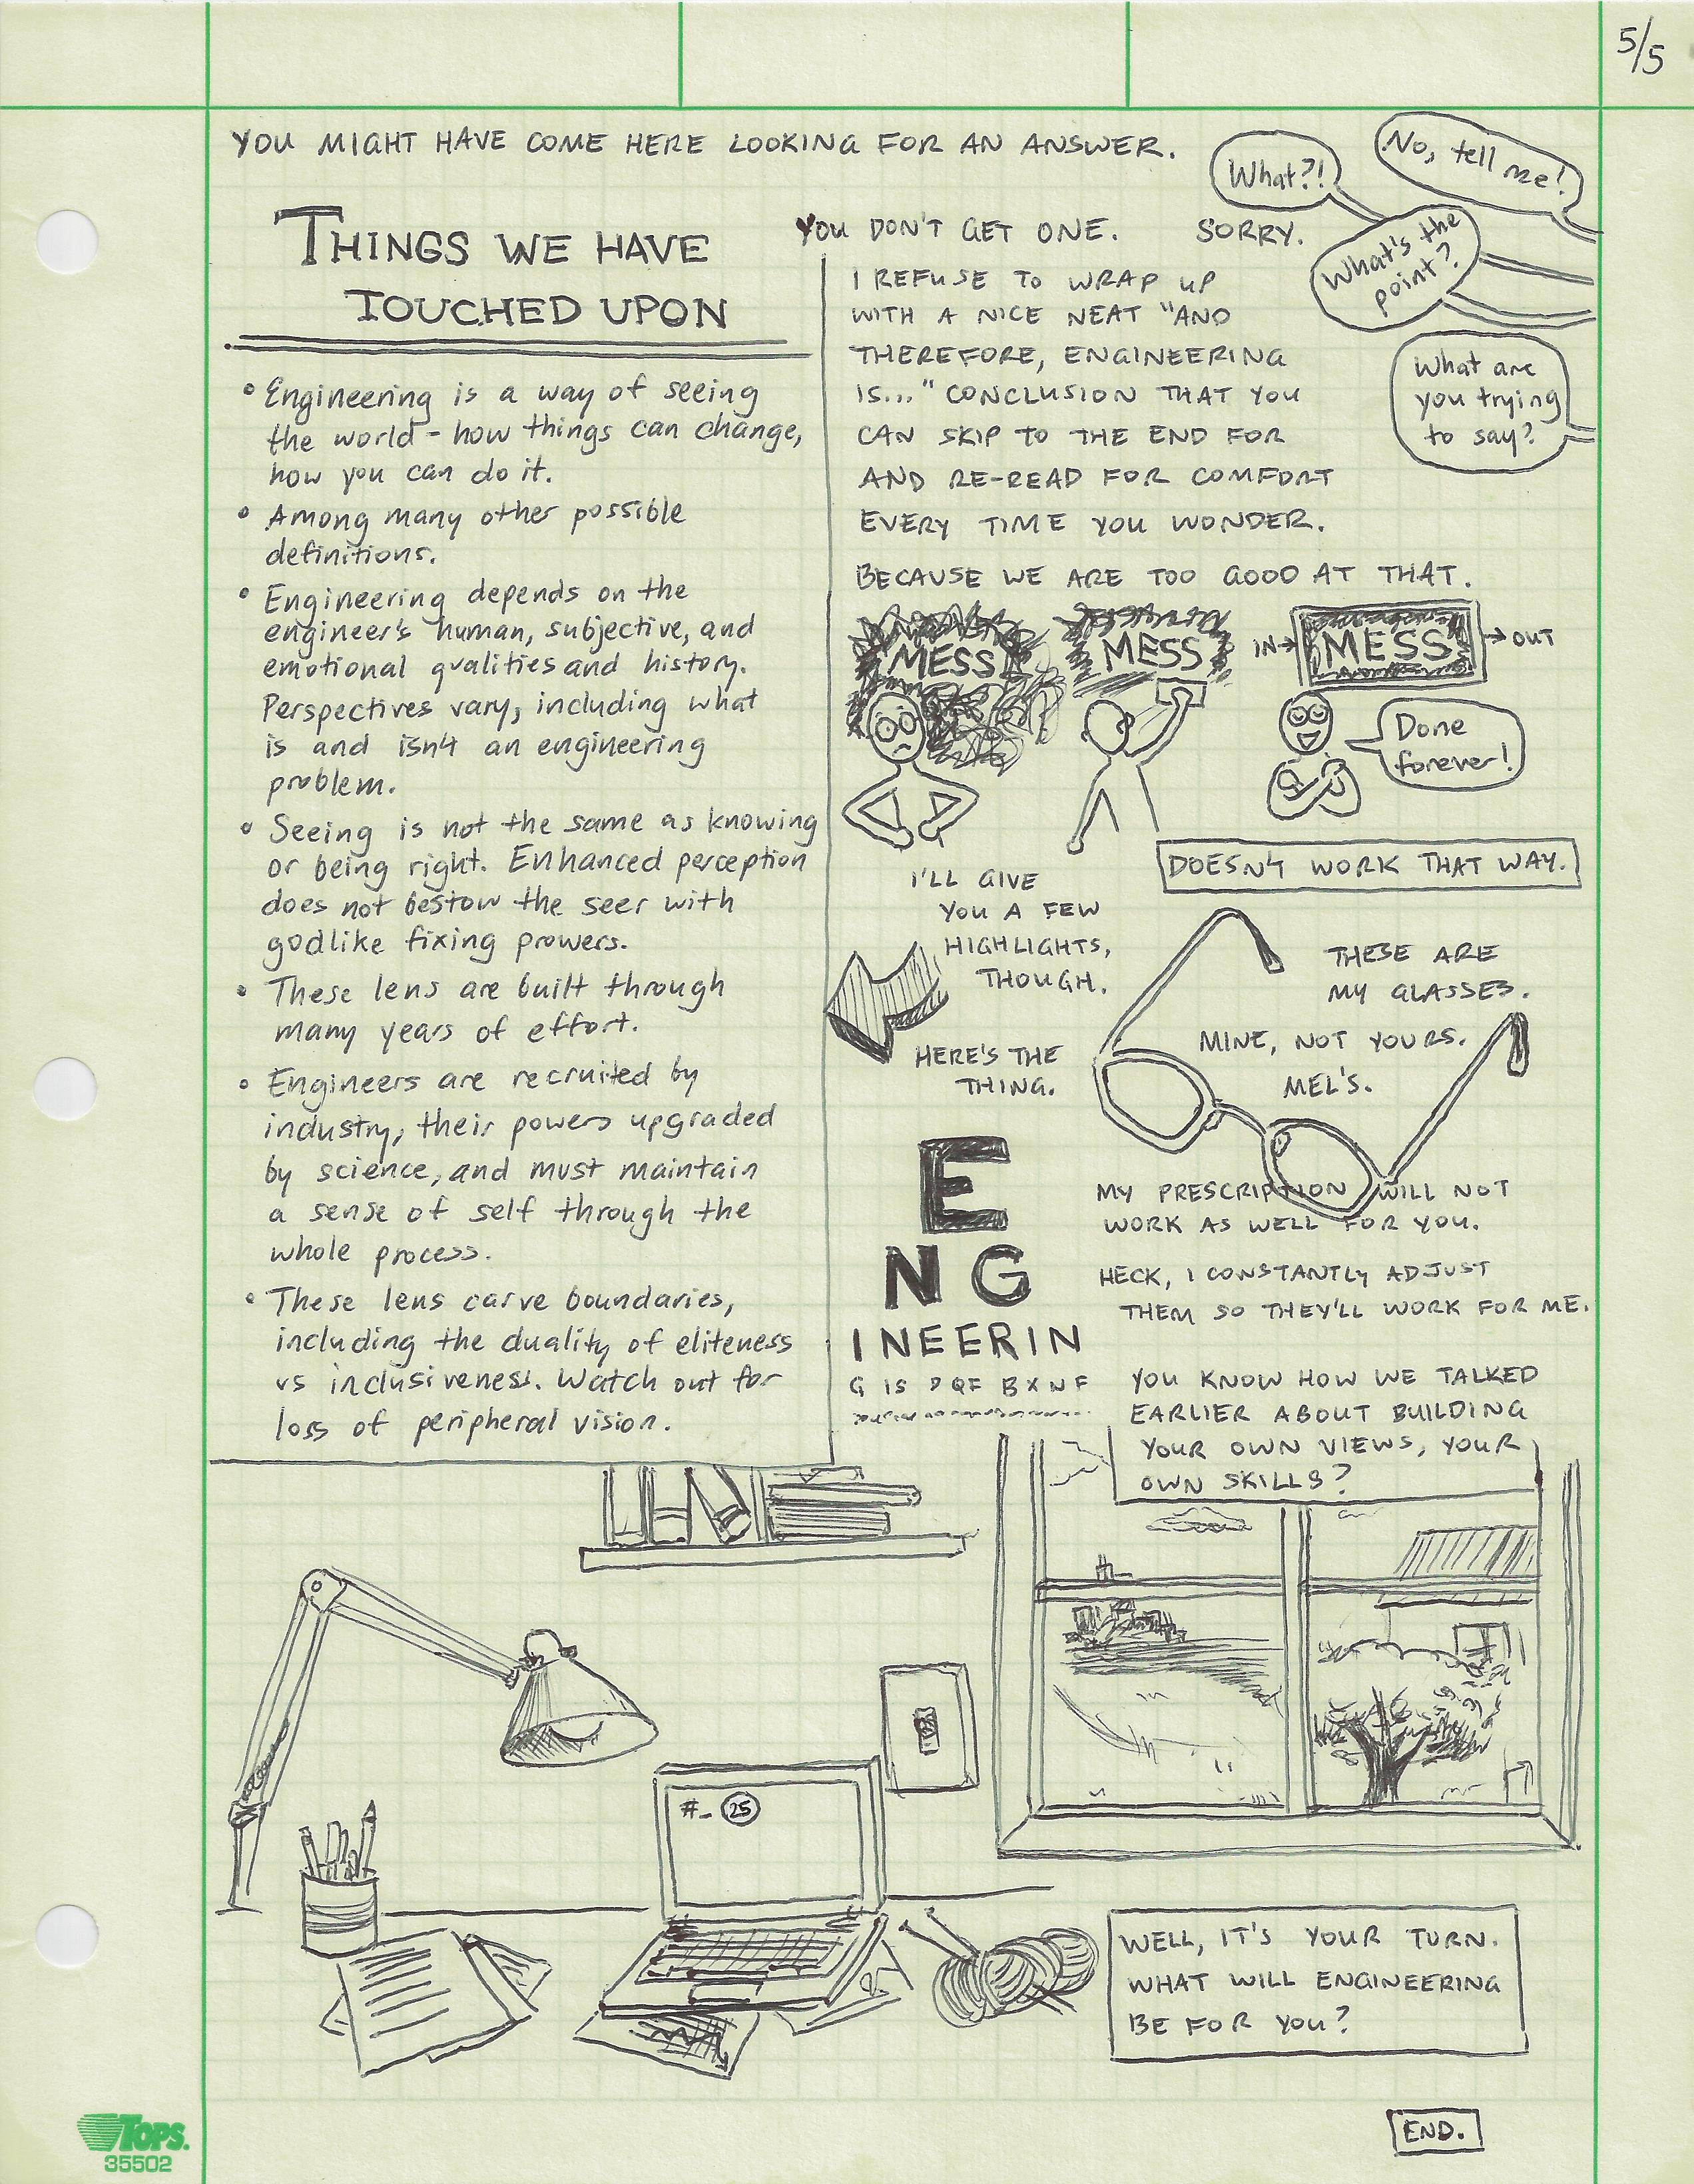 5/5
YOU MIGHT HAVE COME HERE LOOKING FOR AN ANSWER.
What?!
No, tell me!
YOU DON'T GET ONE. SORRY.
What's the
point?
What are
you trying
to say?
THINGS WE HAVE
TOUCHED UPON
• Engineering is a way of seeing
the world - how things can change,
how you can do it.
• Among many other possible
definitions.
• Engineering depends on the
engineer's human, subjective, and
emotional qualities and history.
Perspectives vary, including what
is and isn't an engineering
problem.
• Seeing is not the same as knowing
or being right. Enhanced perception
does not bestow the seer with
godlike fixing prowers.
• These lens are built through
many years of effort.
• Engineers are recruited by
industry, their powers upgraded
by science, and must maintain
a sense of self through the
whole process.
• These lens carve boundaries,
including the duality of eliteness
vs inclusiveness. Watch out for
loss of peripheral vision.
I REFUSE TO WRAP UP
WITH A NICE NEAT "AND
THEREFORE, ENGINEERING
IS..." CONCLUSION THAT YOU
CAN SKIP TO THE END FOR
AND RE-READ FOR COMFORT
EVERY TIME YOU WONDER.
BECAUSE WE ARE TOO GOOD AT THAT.
MESS
MESS
IN→ MESS → OUT
Done
forever!
DOESN'T WORK THAT WAY.
I'LL GIVE
YOU A FEW
HIGHLIGHTS,
THOUGH.
HERE'S THE
THING.
THESE ARE
MY GLASSES.
MINE, NOT YOURS.
MEL'S.
E
NG
INEERIN
G IS DQF BXNF
MY PRESCRIPTION WILL NOT
WORK AS WELL FOR YOU.
HECK, I CONSTANTLY ADJUST
THEM SO THEY'LL WORK FOR ME.
YOU KNOW HOW WE TALKED
EARLIER ABOUT BUILDING
YOUR OWN VIEWS, YOUR
OWN SKILLS?
#_ 25
WELL, IT'S YOUR TURN.
WHAT WILL ENGINEERING
BE FOR YOU?
END.
TOPS.
35502